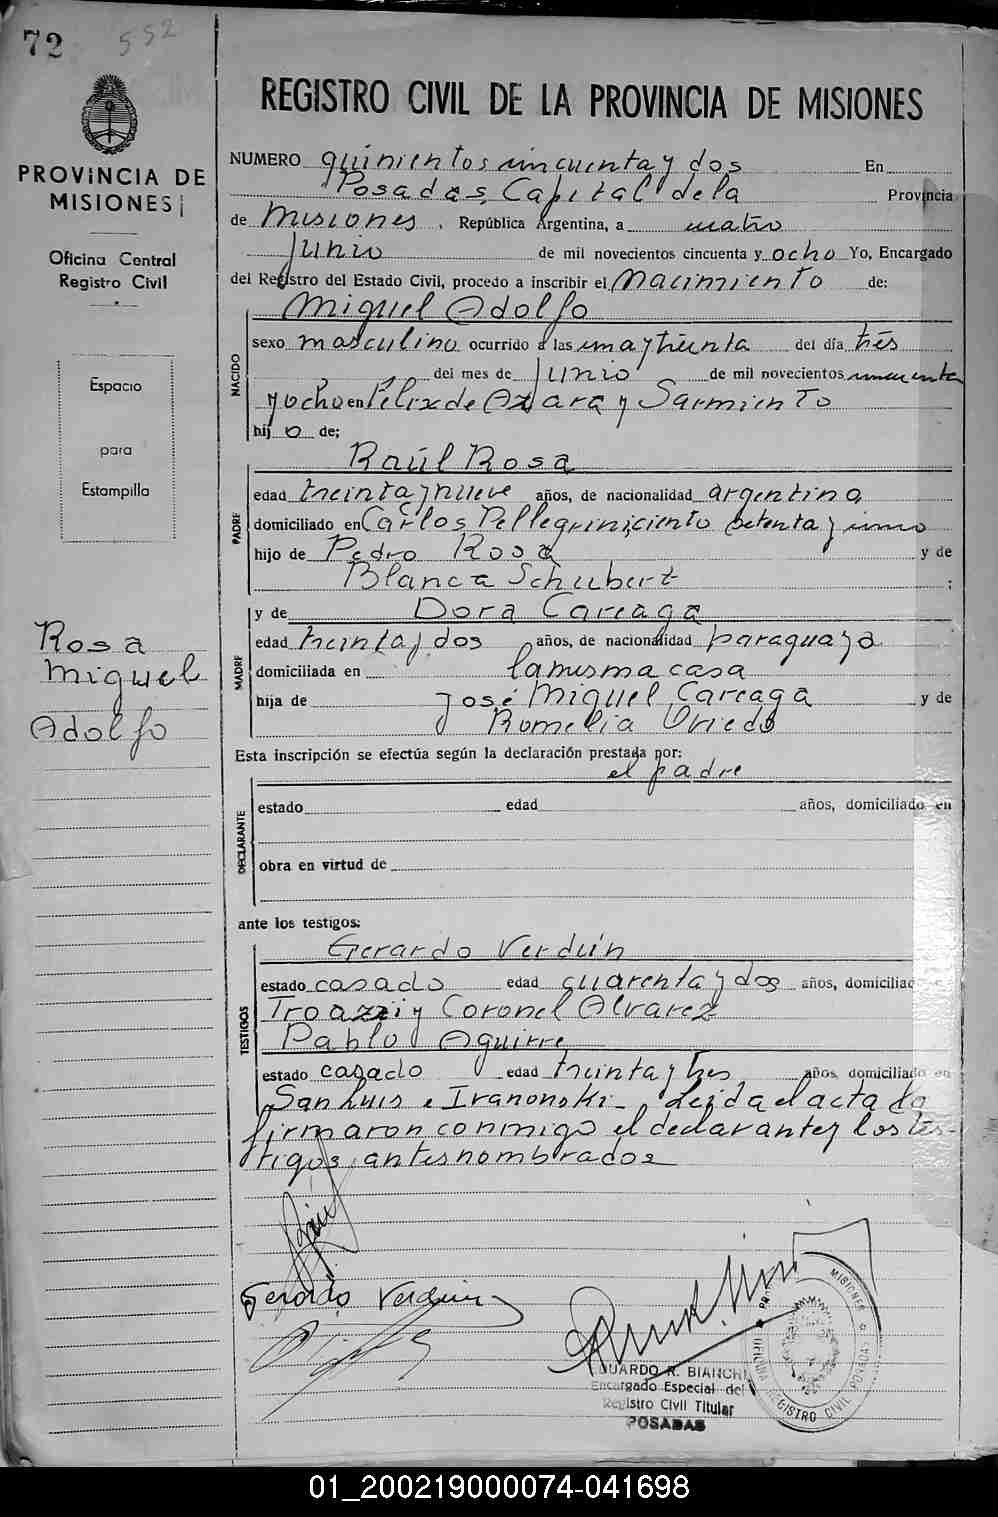 72 552
PROVINCIA DE
MISIONES
Oficina Central
Registro Civil
Espacio
para
Estampilla
Rosa
Miguel
Adolfo
REGISTRO CIVIL DE LA PROVINCIA DE MISIONES
NUMERO quinientos cincuenta y dos En
Posadas, Capital de la Provincia
de Misiones, República Argentina, a cuatro
Junio de mil novecientos cincuenta y ocho Yo, Encargado
del Registro del Estado Civil, procedo a inscribir el Nacimiento de:
Miguel Adolfo
NACIDO
sexo masculino ocurrido a las una y treinta del día tres
del mes de Junio de mil novecientos cincuenta
y ocho en Félix de Azara y Sarmiento
hijo de;
Raúl Rosa
PADRE
edad treinta y nueve años, de nacionalidad argentino,
domiciliado en Carlos Pellegrini, ciento setenta y uno
hijo de Pedro Rosa y de
Blanca Schubert ;
y de Dora Careaga
MADRE
edad treinta y dos años, de nacionalidad paraguaya
domiciliada en la misma casa
hija de José Miguel Careaga y de
Romelia Oviedo
Esta inscripción se efectúa según la declaración prestada por:
el padre
DECLARANTE
estado edad años, domiciliado en
obra en virtud de
ante los testigos:
Gerardo Verdún
TESTIGOS
estado casado edad cuarenta y dos años, domiciliado
Troazzi y Coronel Alvarez
Pablo Aguirre
estado casado edad treinta y tres años, domiciliado en
San Luis e Ivanonski_ Leida el acta la
firmaron conmigo el declarante y los tes-
tigos antes nombrados
Gerardo Verdun
EDUARDO R. BIANCHI
Encargado Especial del
Registro Civil Titular
POSADAS
MISIONES
REGISTRO CIVIL POSADAS
01_200219000074-041698